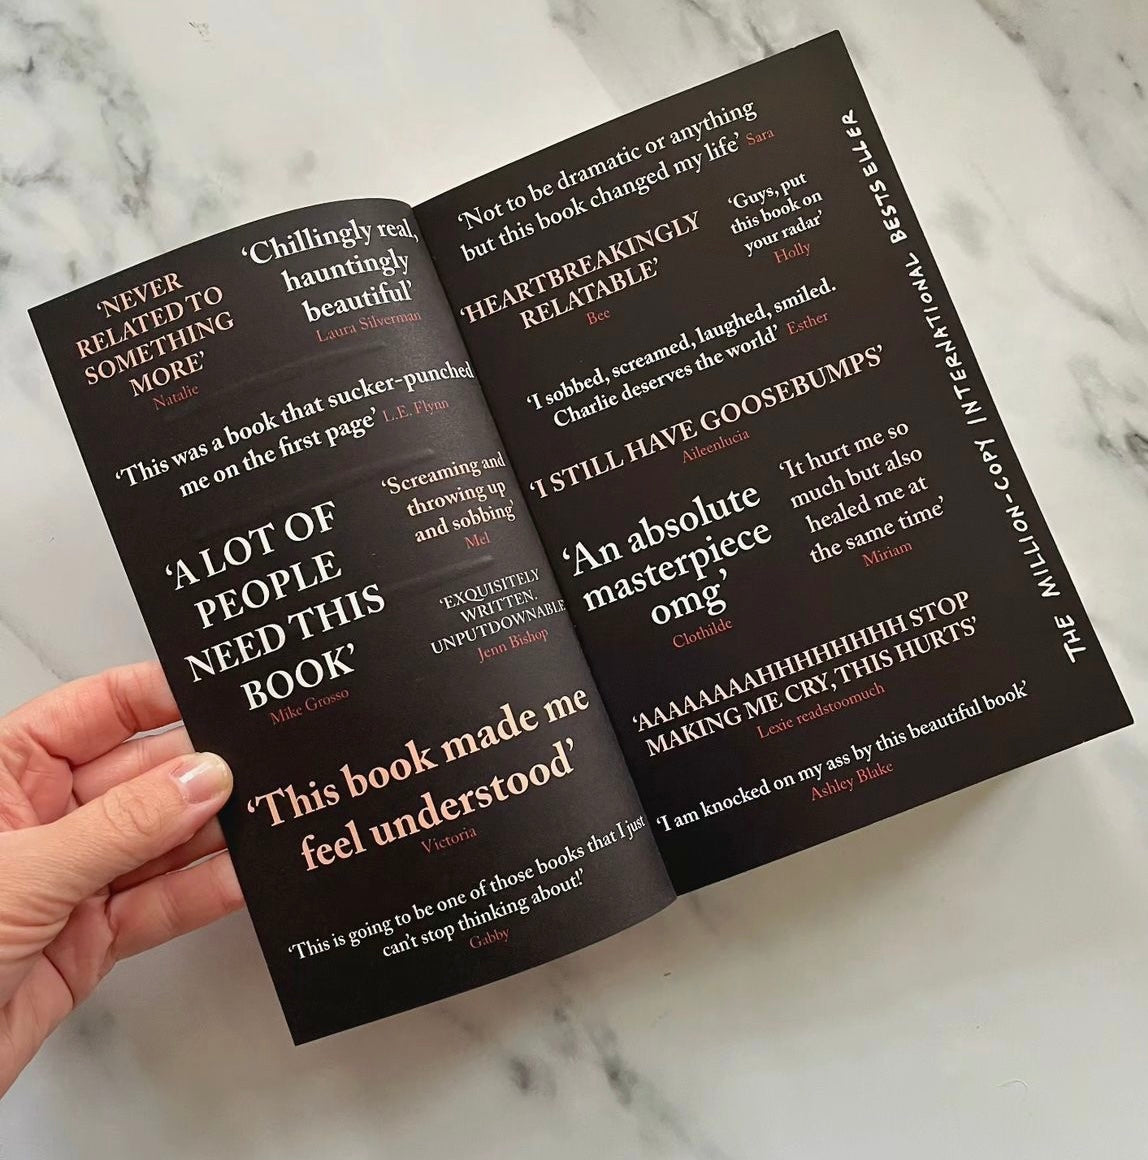 ‘NEVER
RELATED TO
SOMETHING
MORE’
Natalie
‘Chillingly real,
hauntingly
beautiful’
Laura Silverman
‘This was a book that sucker-punched
me on the first page’ L.E. Flynn
‘A LOT OF
PEOPLE
NEED THIS
BOOK’
Mike Grosso
‘Screaming and
throwing up
and sobbing’
Mel
‘EXQUISITELY
WRITTEN.
UNPUTDOWNABLE
Jenn Bishop
‘This book made me
feel understood’
Victoria
‘This is going to be one of those books that I just
can’t stop thinking about!’
Gabby
‘Not to be dramatic or anything
but this book changed my life’ Sara
‘HEARTBREAKINGLY
RELATABLE’
Bee
‘Guys, put
this book on
your radar’
Holly
‘I sobbed, screamed, laughed, smiled.
Charlie deserves the world’ Esther
‘I STILL HAVE GOOSEBUMPS’
Aileenlucia
‘An absolute
masterpiece
omg’
Clothilde
‘It hurt me so
much but also
healed me at
the same time’
Miriam
‘AAAAAAAHHHHHHHH STOP
MAKING ME CRY, THIS HURTS’
Lexie readstoomuch
‘I am knocked on my ass by this beautiful book’
Ashley Blake
THE MILLION-COPY INTERNATIONAL BESTSELLER